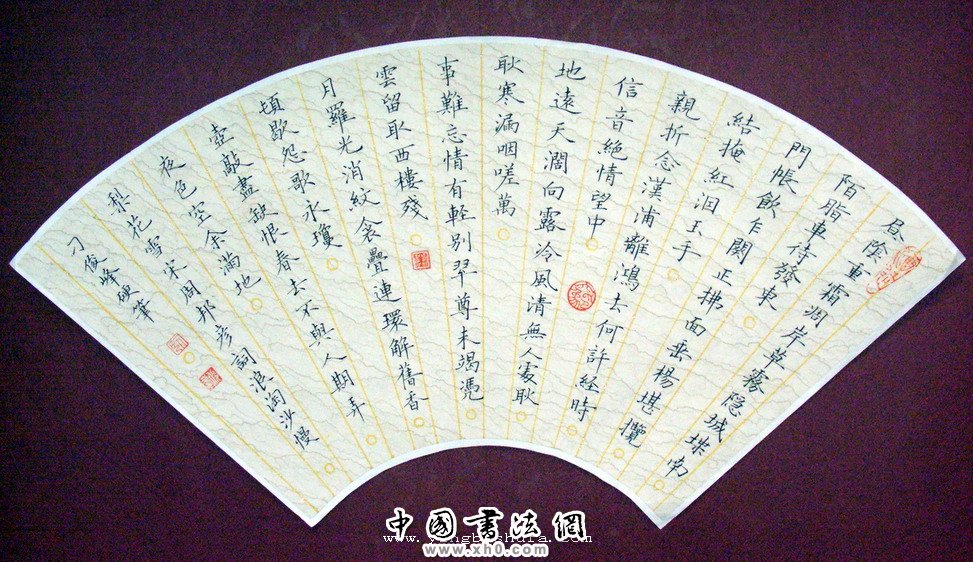 昼陰重霜凋岸草霧隐城堞南
陌脂車待發東
門帳飲乍闋正拂面垂楊堪攬
結掩紅泪玉手
親折念漢浦離鴻去何許経時
信音絕情望中
地遠天濶向露冷風清無人處耿
耿寒漏咽嗟萬
事難忘情有軽别翠尊未竭憑
雲留取西樓殘
月羅光消紋衾疊連環解舊香
頓歇怨歌永瓊
壺敲盡缺恨春去不與人期弄
夜色空余滿地
梨花雪宋周邦彦詞浪淘沙慢
刁俊峰硬筆
中国書法網
www.xh0.com